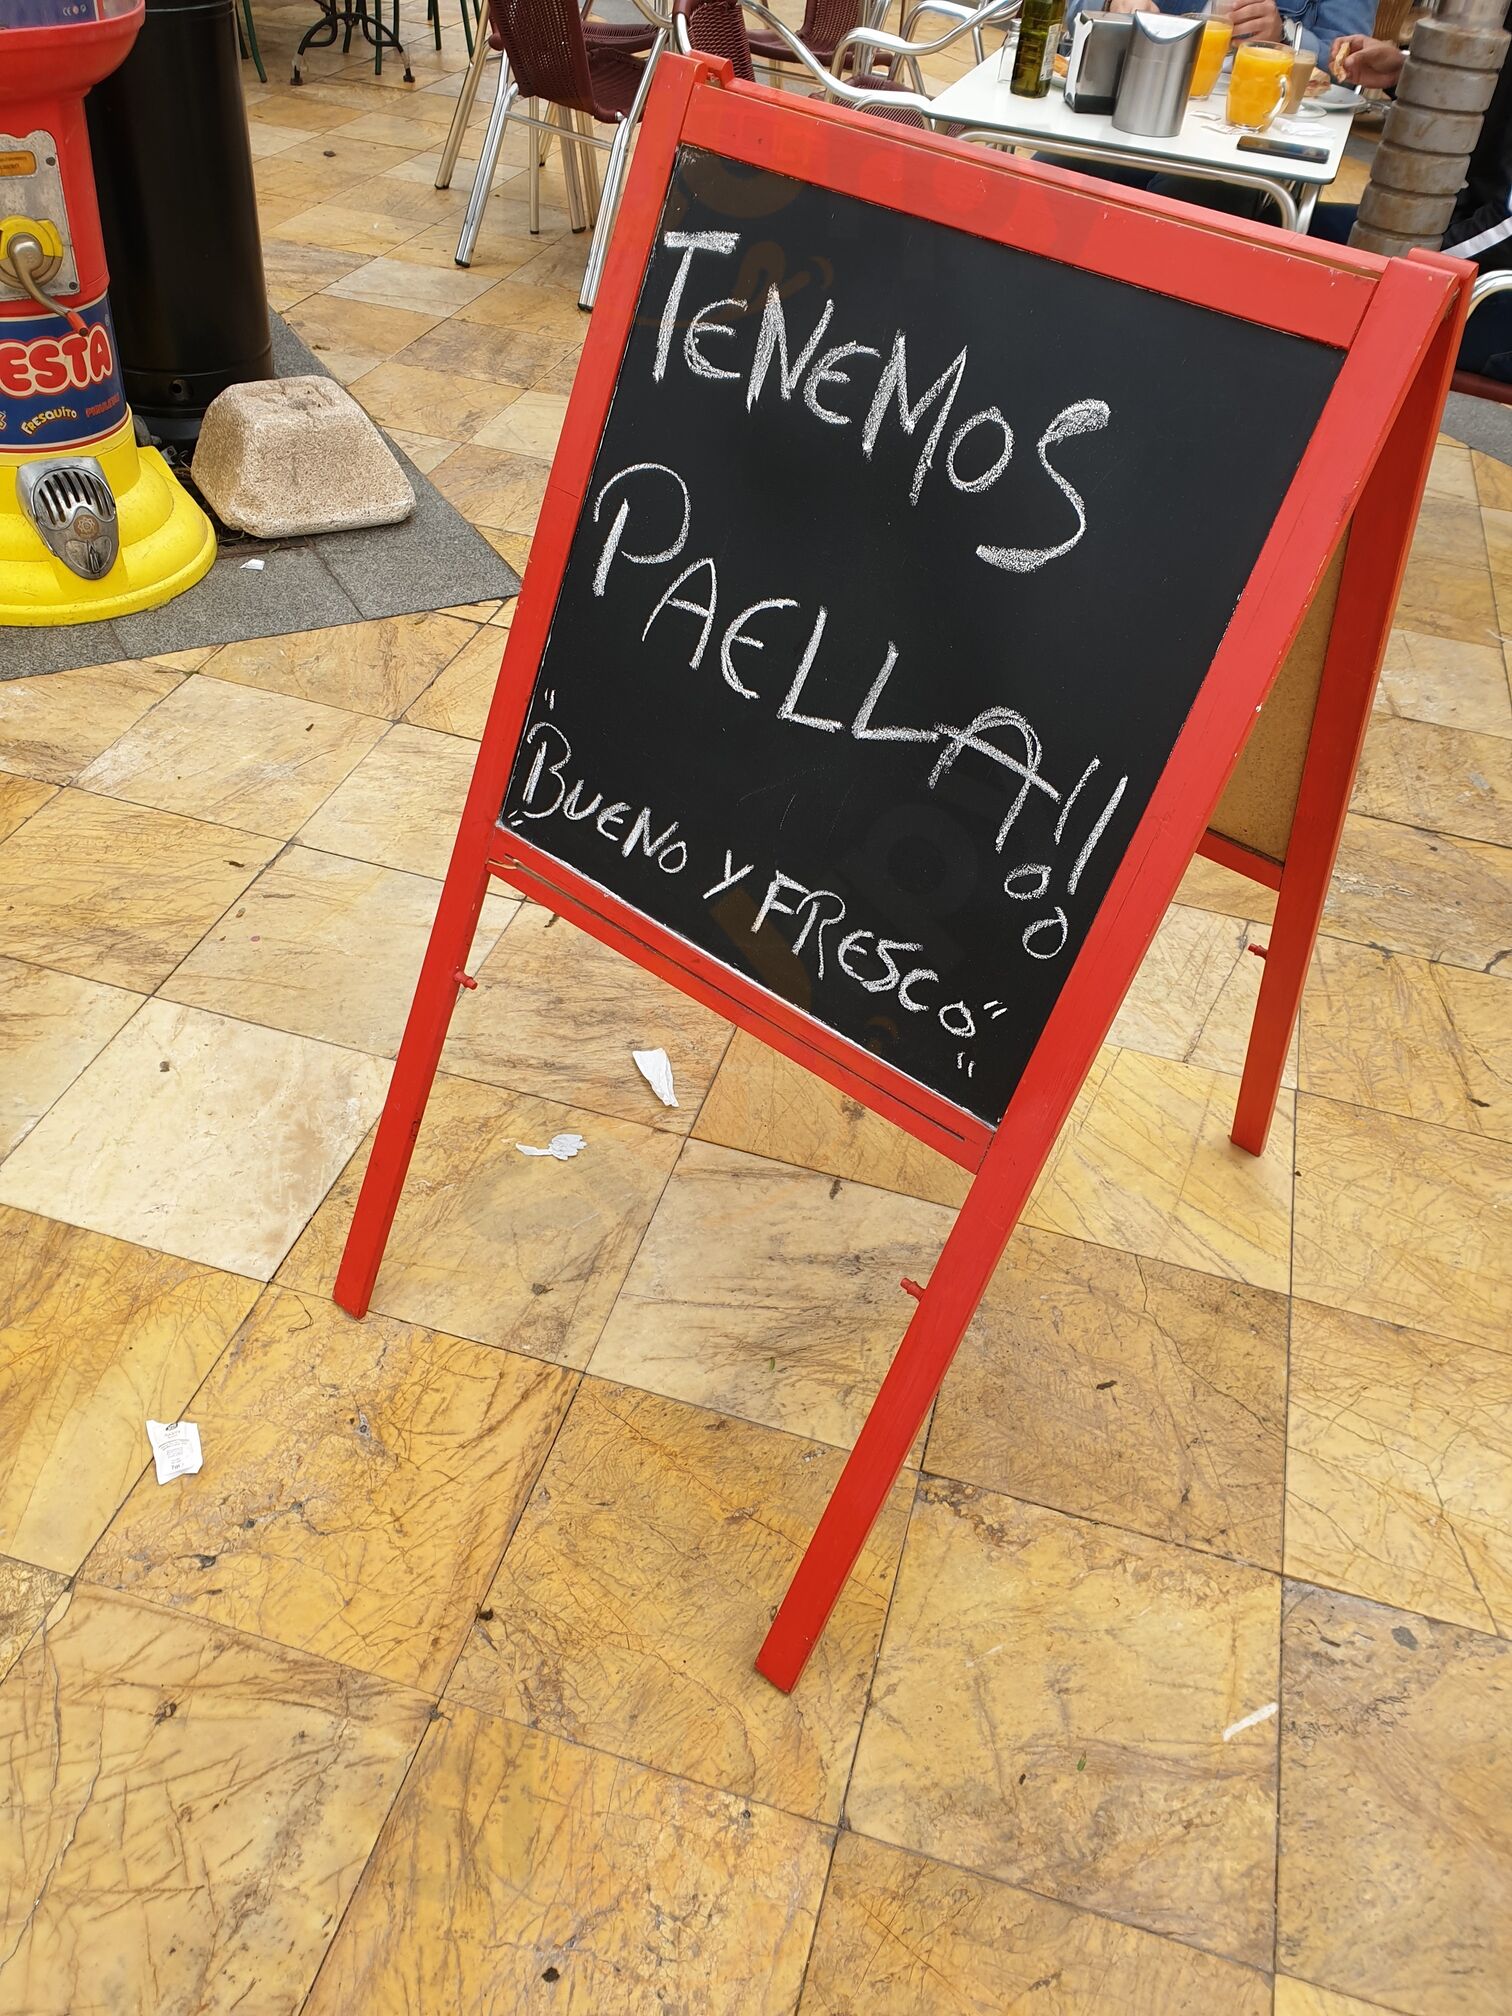 TENEMOS
PAELLA!!
"BUENO Y FRESCO"
ESTA
FRESQUITO